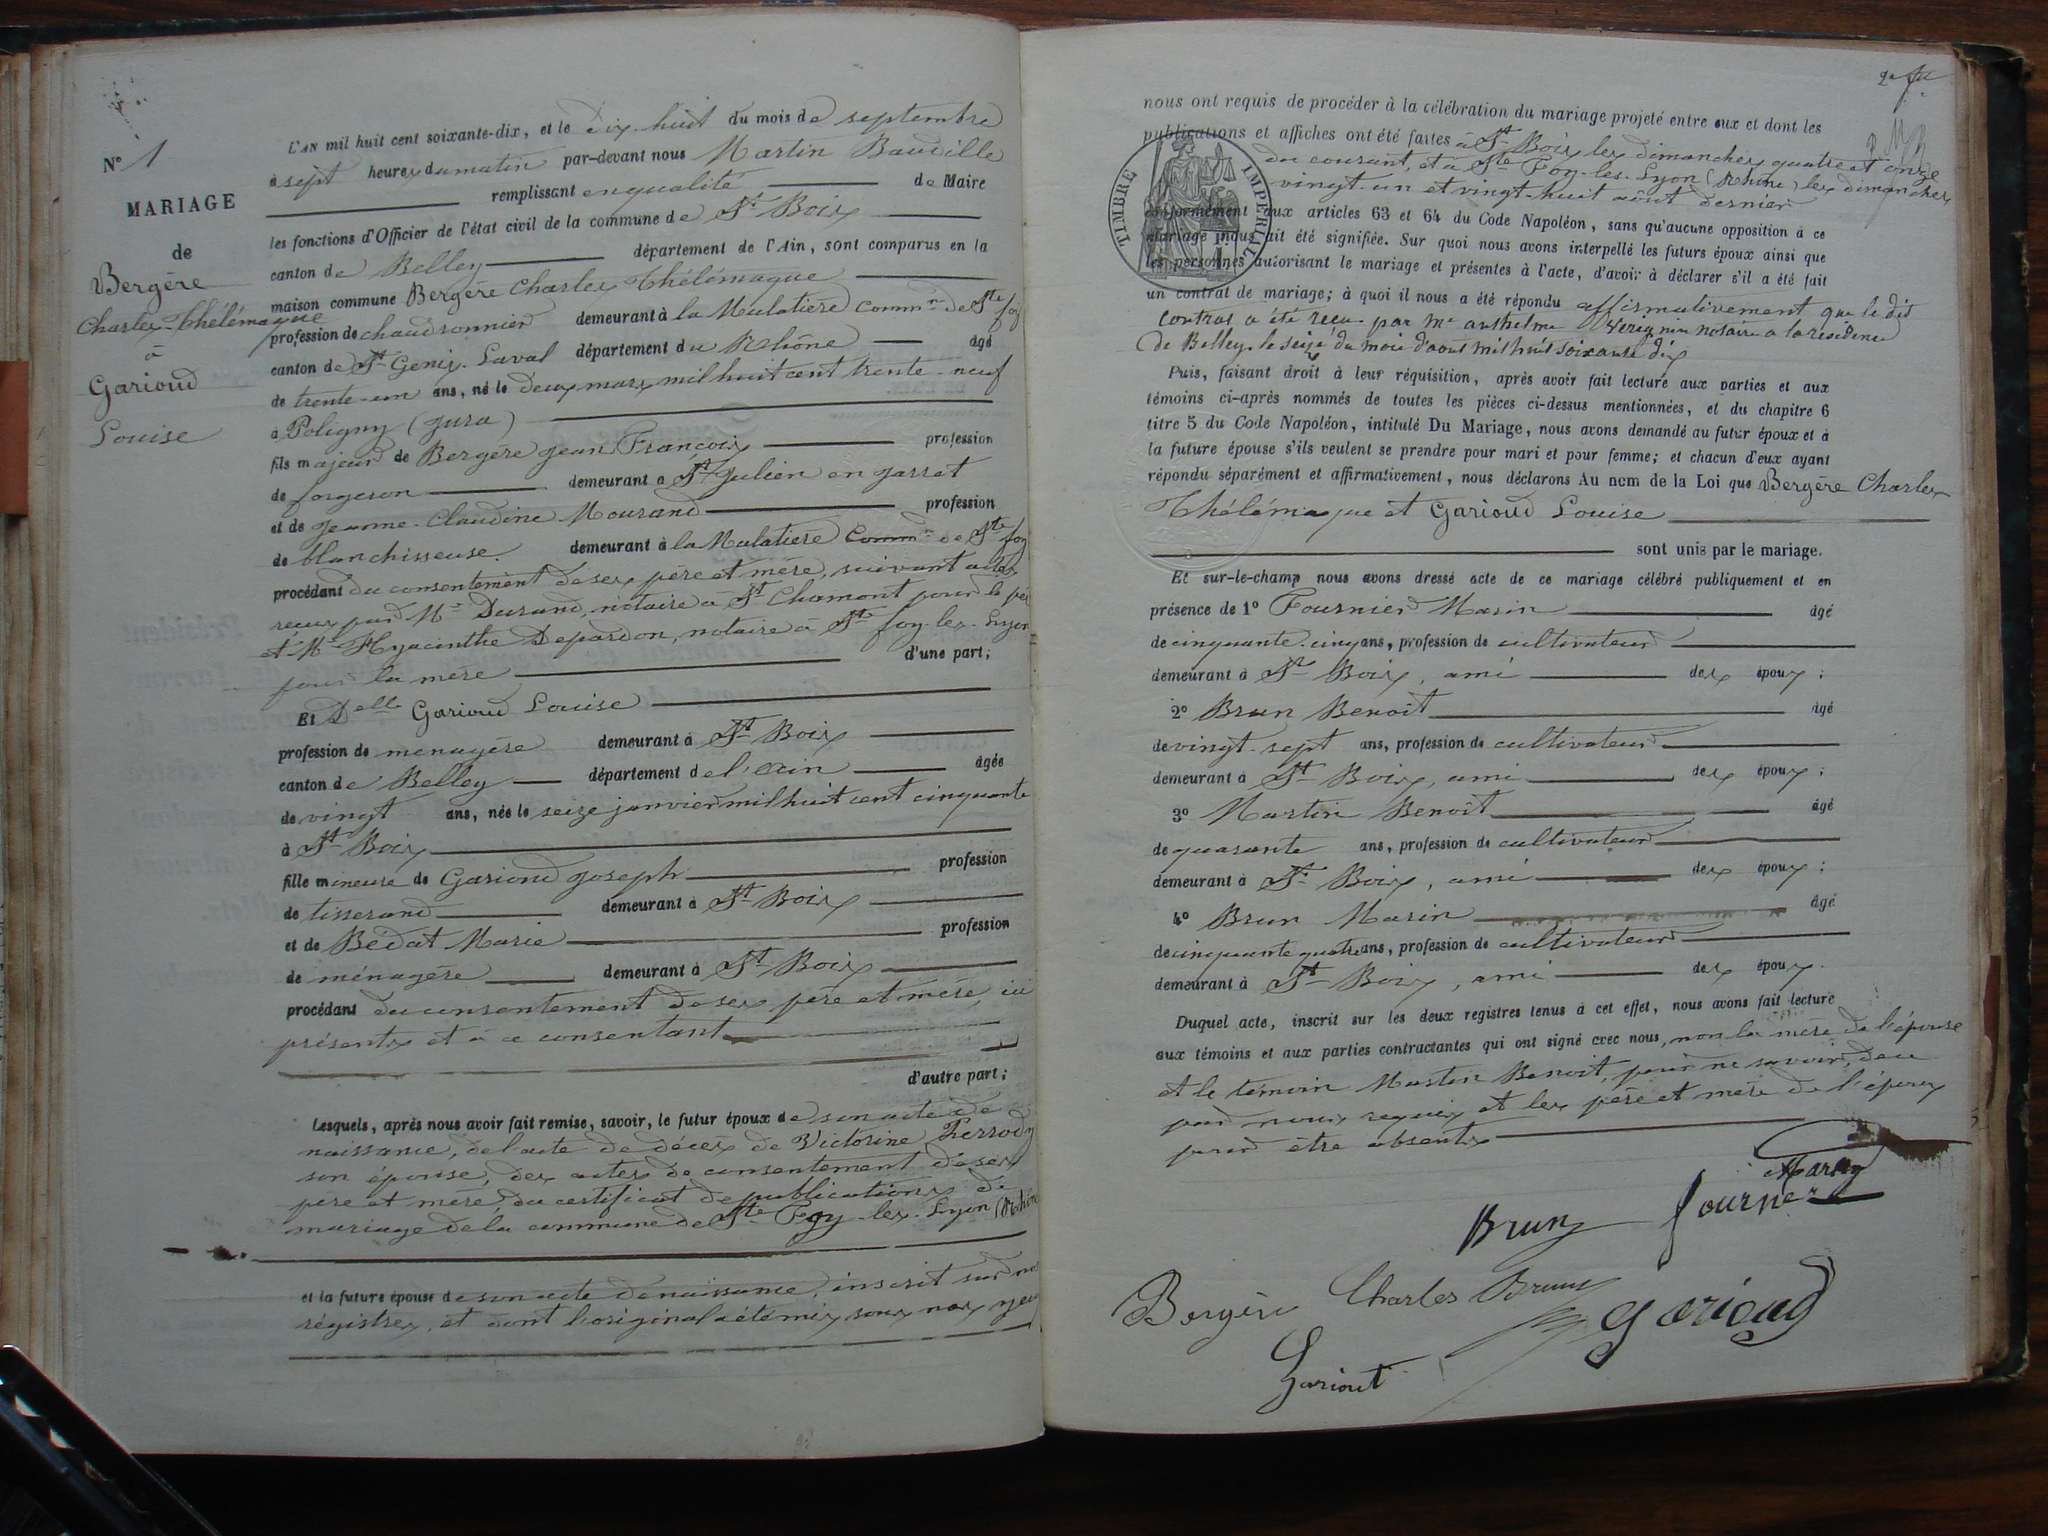 N° 1
MARIAGE
de
Bergère
Charles-Thélémaque
à
Garioud
Louise
L'AN mil huit cent soixante-dix, et le dix huit du mois de septembre
à sept heures du matin par-devant nous Martin Baudille
remplissant en qualité de Maire
les fonctions d'Officier de l'état civil de la commune de St Boix
canton de Belley département de l'Ain, sont comparus en la
maison commune Bergère Charles Thélémaque
profession de chaudronnier demeurant à la Mulatière Commne de Ste foy
canton de St Genis-Laval département du Rhône âgé
de trente-un ans, né le deux mars mil huit cent trente-neuf
à Poligny (jura)
fils majeur de Bergère jean François profession
de forgeron demeurant à St julien en jarret
et de jeanne-Claudine Mourand profession
de blanchisseuse demeurant à la Mulatière Commne de Ste foy
procédant du consentement de ses père et mère, suivant actes
reçus par Me Durand, notaire à St Chamont pour le père
et Me Hyacinthe Depardon, notaire à Ste foy-les-Lyon
pour la mère d'une part;
Et Delle Garioud Louise
profession de ménagère demeurant à St Boix
canton de Belley département de l'ain âgée
de vingt ans, née le seize janvier mil huit cent cinquante
à St Boix
fille mineure de Garioud joseph profession
de tisserand demeurant à St Boix
et de Bédat Marie profession
de ménagère demeurant à St Boix
procédant du consentement de ses père et mère, ici
présents et à ce consentant
d'autre part;
Lesquels, après nous avoir fait remise, savoir, le futur époux de son acte de
naissance, de l'acte de décès de Victorine Ferrody
son épouse, des actes de consentement de ses
père et mère, du certificat de publications de
mariage de la commune de Ste Foy-les-Lyon (Rhône
et la future épouse de son acte de naissance, inscrit sur nos
régistres, et dont l'original a été mis sous nos yeux
nous ont requis de procéder à la célébration du mariage projeté entre eux et dont les
publications et affiches ont été faites à St Boix les dimanches quatre et onze
du courant, et à Ste Foy-les-Lyon (Rhône) les dimanches
vingt-un et vingt-huit août dernier
TIMBRE IMPÉRIAL
conformément aux articles 63 et 64 du Code Napoléon, sans qu'aucune opposition à ce
mariage nous ait été signifiée. Sur quoi nous avons interpellé les futurs époux ainsi que
les personnes autorisant le mariage et présentes à l'acte, d'avoir à déclarer s'il a été fait
un contrat de mariage; à quoi il nous a été répondu affirmativement que le dit
contrat a été reçu par Me anthelme notaire a la résidence
de Belley le seize du mois d'aout mil huit soixante dix
Puis, faisant droit à leur réquisition, après avoir fait lecture aux parties et aux
témoins ci-après nommés de toutes les pièces ci-dessus mentionnées, et du chapitre 6
titre 5 du Code Napoléon, intitulé Du Mariage, nous avons demandé au futur époux et à
la future épouse s'ils veulent se prendre pour mari et pour femme; et chacun d'eux ayant
répondu séparément et affirmativement, nous déclarons Au nom de la Loi que Bergère Charles
Thélémaque et Garioud Louise
sont unis par le mariage.
Et sur-le-champ nous avons dressé acte de ce mariage célébré publiquement et en
présence de 1° Fournier Marin âgé
de cinquante-cinq ans, profession de cultivateur
demeurant à St Boix, ami des époux;
2° Brun Benoît âgé
de vingt-sept ans, profession de cultivateur
demeurant à St Boix, ami des époux;
3° Martin Benoît âgé
de quarante ans, profession de cultivateur
demeurant à St Boix, ami des époux;
4° Brun Marin âgé
de cinquante quatre ans, profession de cultivateur
demeurant à St Boix, ami des époux.
Duquel acte, inscrit sur les deux registres tenus à cet effet, nous avons fait lecture
aux témoins et aux parties contractantes qui ont signé avec nous, non la mère de l'épouse
et le témoin Martin Benoît, pour ne savoir, de ce
par nous requis et les père et mère de l'époux
pour être absents
Martin
Brun fournier
Bergère Charles Brun garioud
Gariout